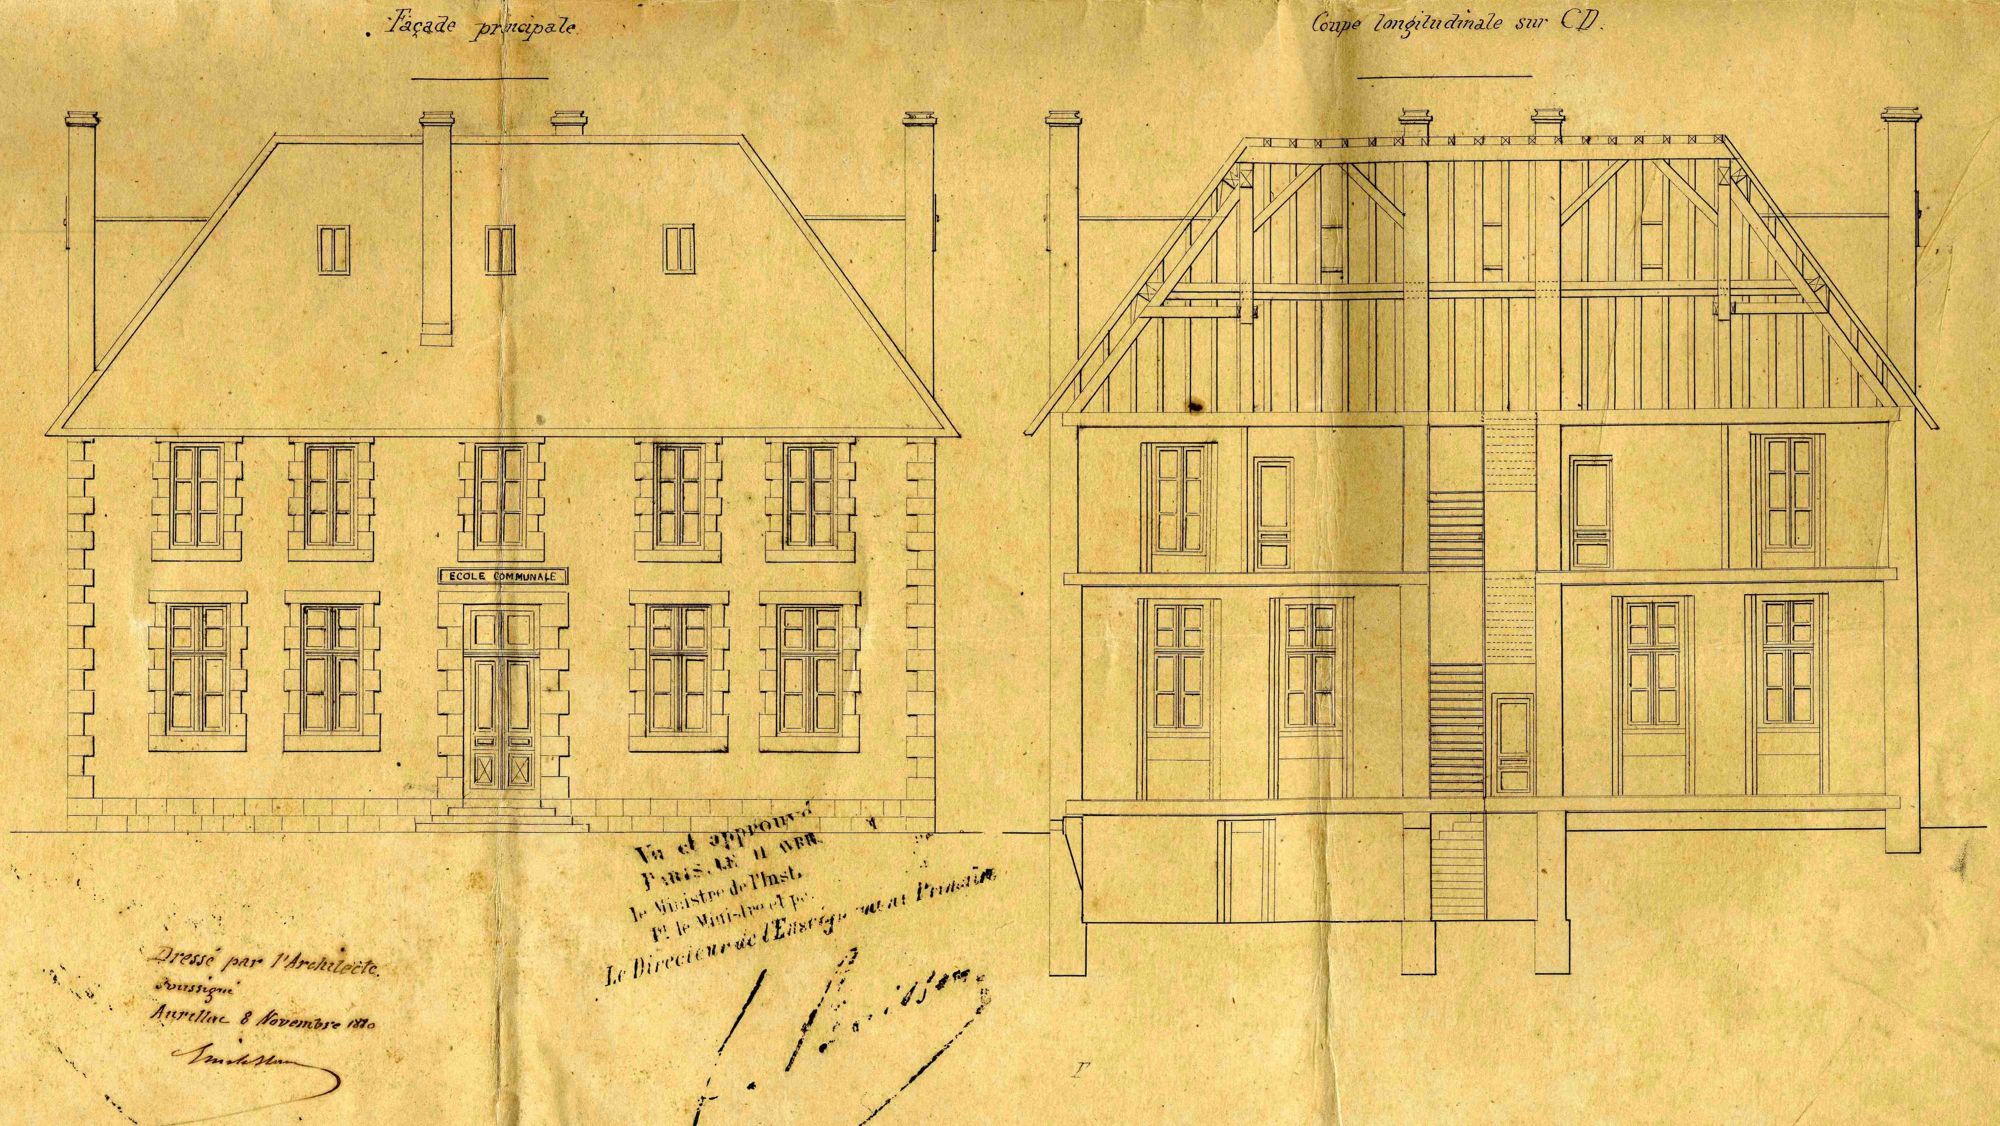 Façade principale
Coupe longitudinale sur CD.
ECOLE COMMUNALE
Vu et approuvé
PARIS, LE 11 AVR
le Ministre de l'Inst.
Pr. le Ministre et
Le Directeur de l'Enseignement Primaire
Dressé par l'Architecte
soussigné
Aurillac 8 Novembre 1880